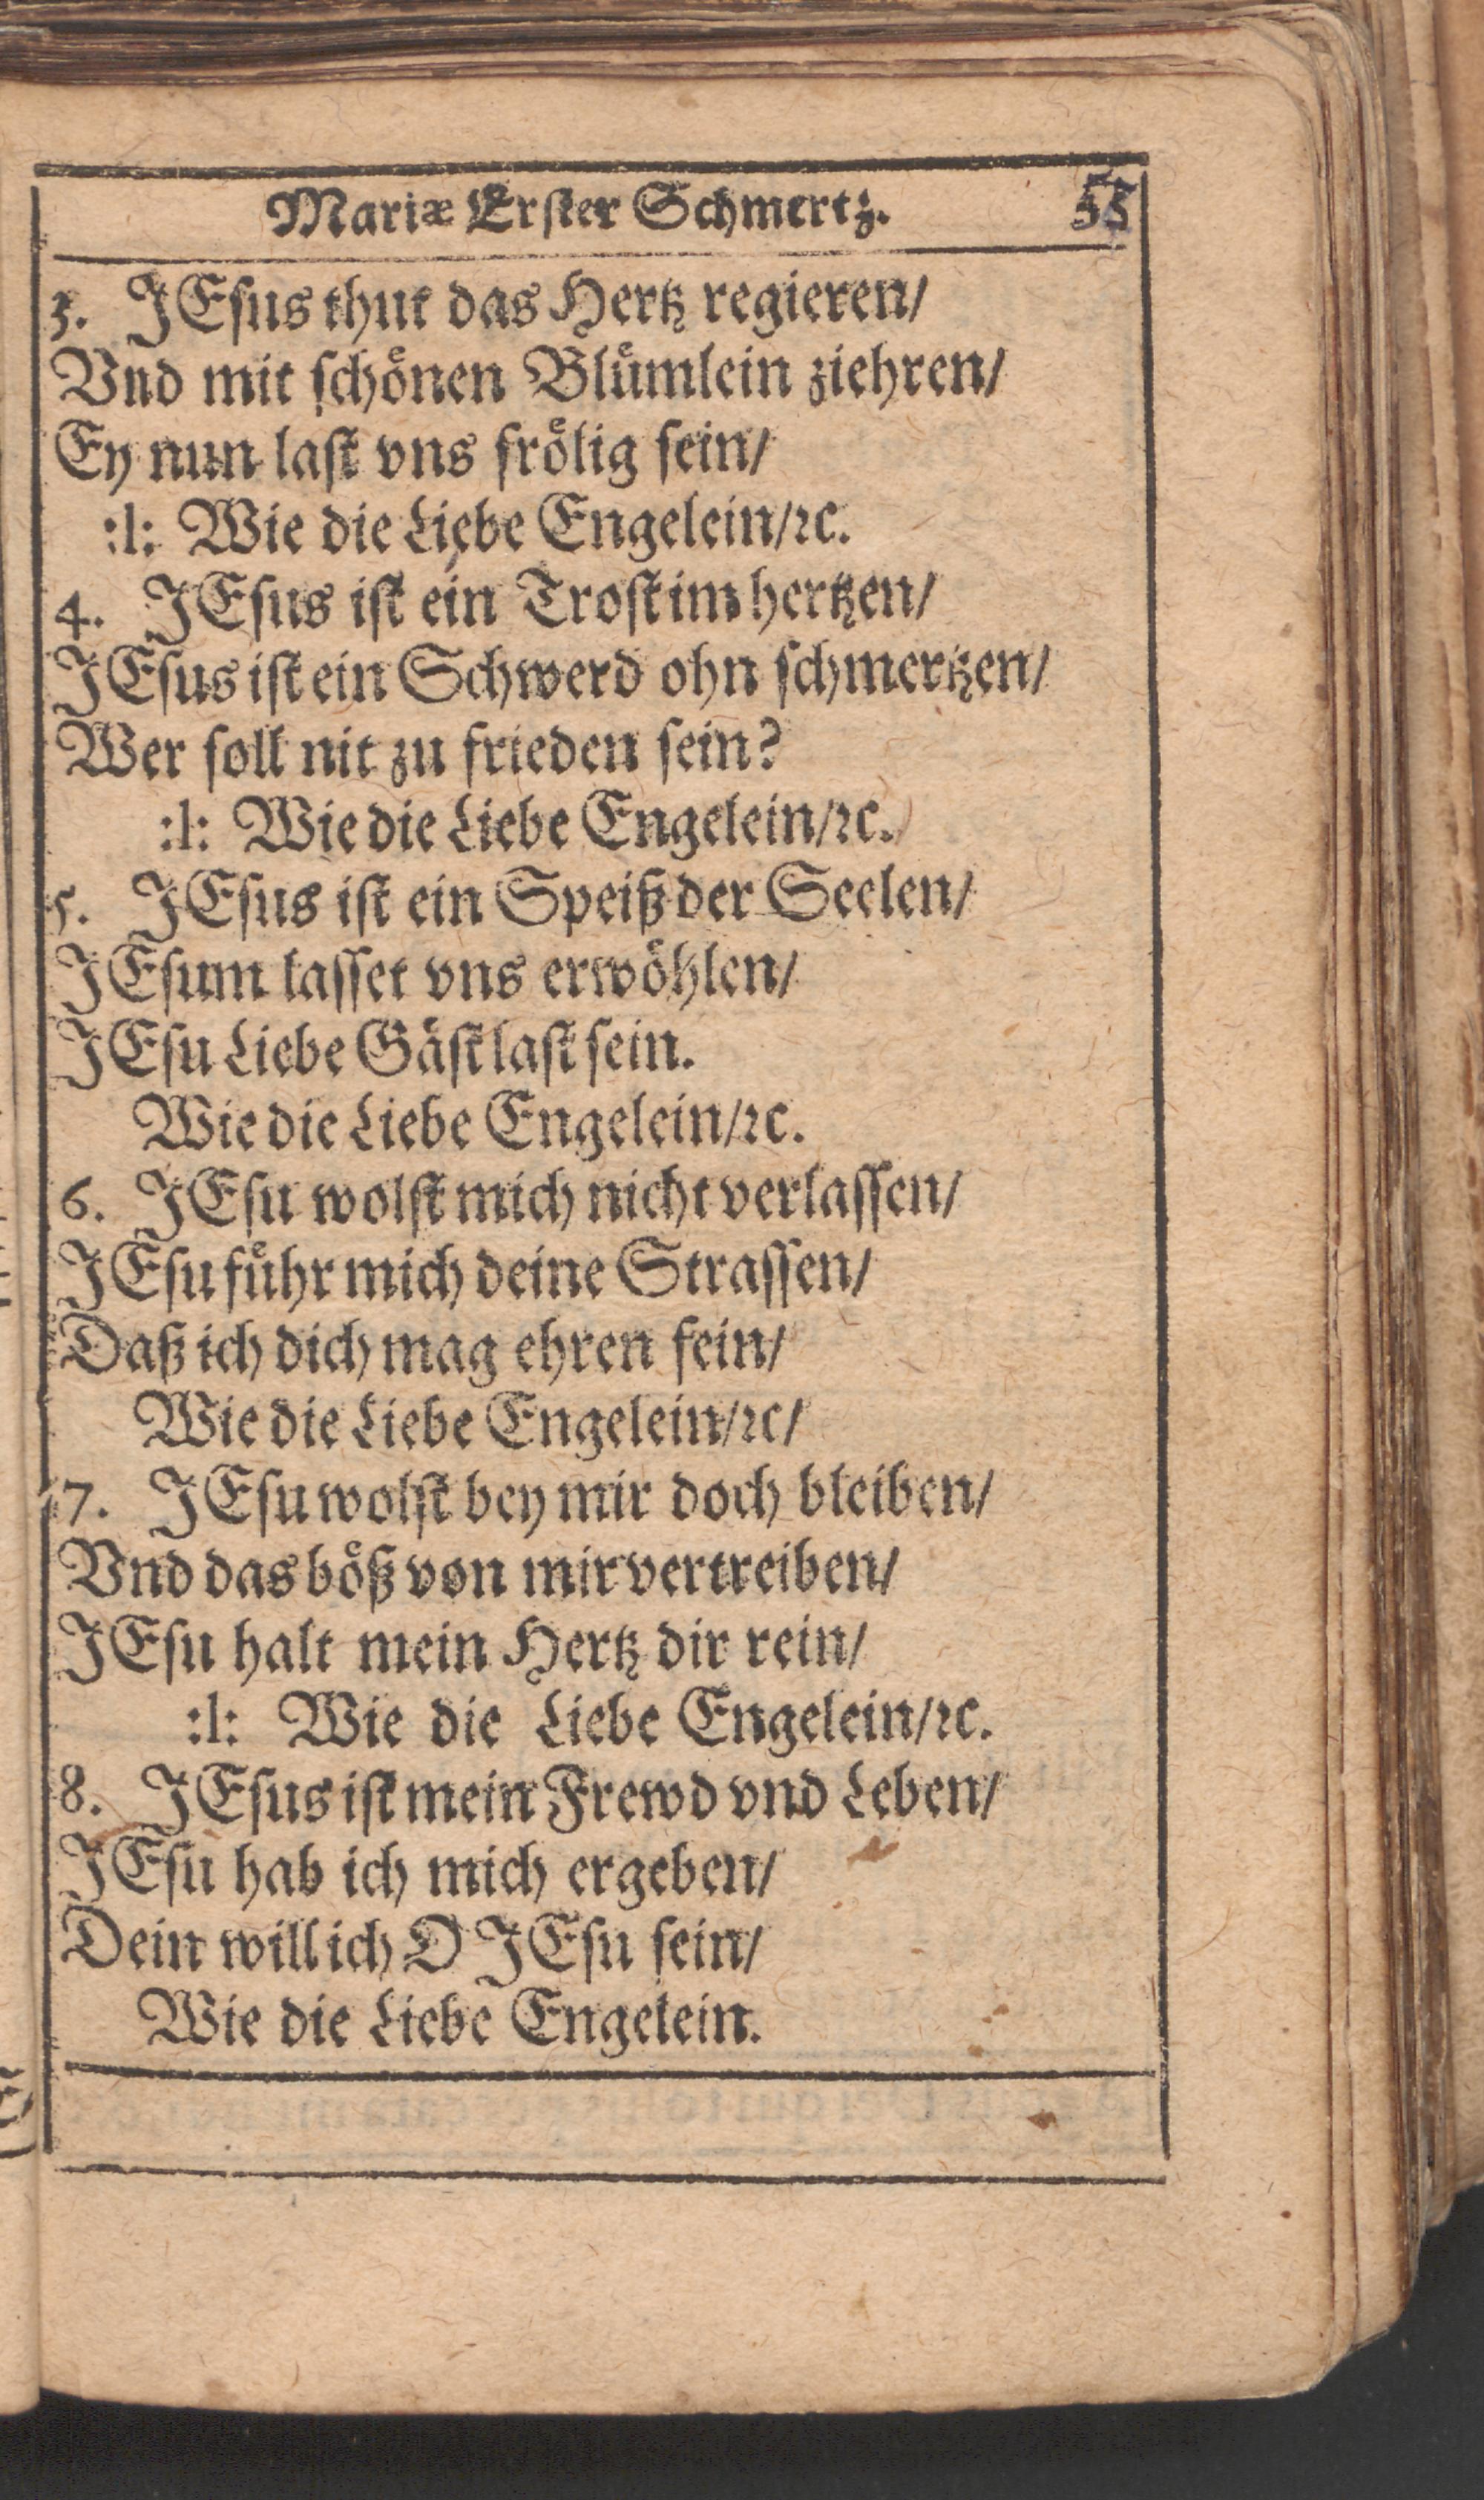 Mariæ Erster Schmertz. 55
3. JEsus thut das Hertz regieren/
Vnd mit schönen Blümlein ziehren/
Ey nun last vns frölig sein/
:l: Wie die Liebe Engelein/ꝛc.
4. JEsus ist ein Trost im hertzen/
JEsus ist ein Schwerd ohn schmertzen/
Wer soll nit zu frieden sein?
:l: Wie die Liebe Engelein/ꝛc.
5. JEsus ist ein Speiß der Seelen/
JEsum lasset vns erwöhlen/
JEsu Liebe Gäst last sein.
Wie die Liebe Engelein/ꝛc.
6. JEsu wolst mich nicht verlassen/
JEsu führ mich deine Strassen/
Daß ich dich mag ehren fein/
Wie die Liebe Engelein/ꝛc/
7. JEsu wolst bey mir doch bleiben/
Vnd das böß von mir vertreiben/
JEsu halt mein Hertz dir rein/
:l: Wie die Liebe Engelein/ꝛc.
8. JEsus ist mein Frewd vnd Leben/
JEsu hab ich mich ergeben/
Dein will ich O JEsu sein/
Wie die Liebe Engelein.